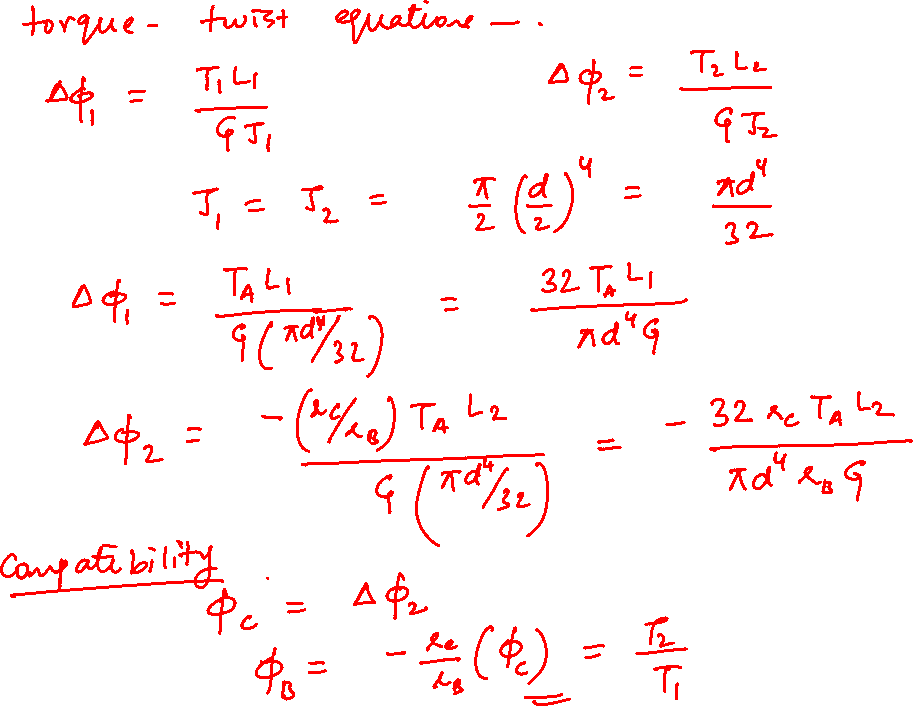 torque - twist equations — .
Δϕ₁ = T₁L₁ / GJ₁    Δϕ₂ = T₂L₂ / GJ₂
J₁ = J₂ = π/2 (d/2)⁴ = πd⁴ / 32
Δϕ₁ = T_A L₁ / G(πd⁴/32) = 32 T_A L₁ / πd⁴G
Δϕ₂ = -(r_C/r_B) T_A L₂ / G(πd⁴/32) = - 32 r_C T_A L₂ / πd⁴ r_B G
Compatibility
ϕ_C = Δϕ₂
ϕ_B = - r_C/r_B (ϕ_C) = T₂/T₁